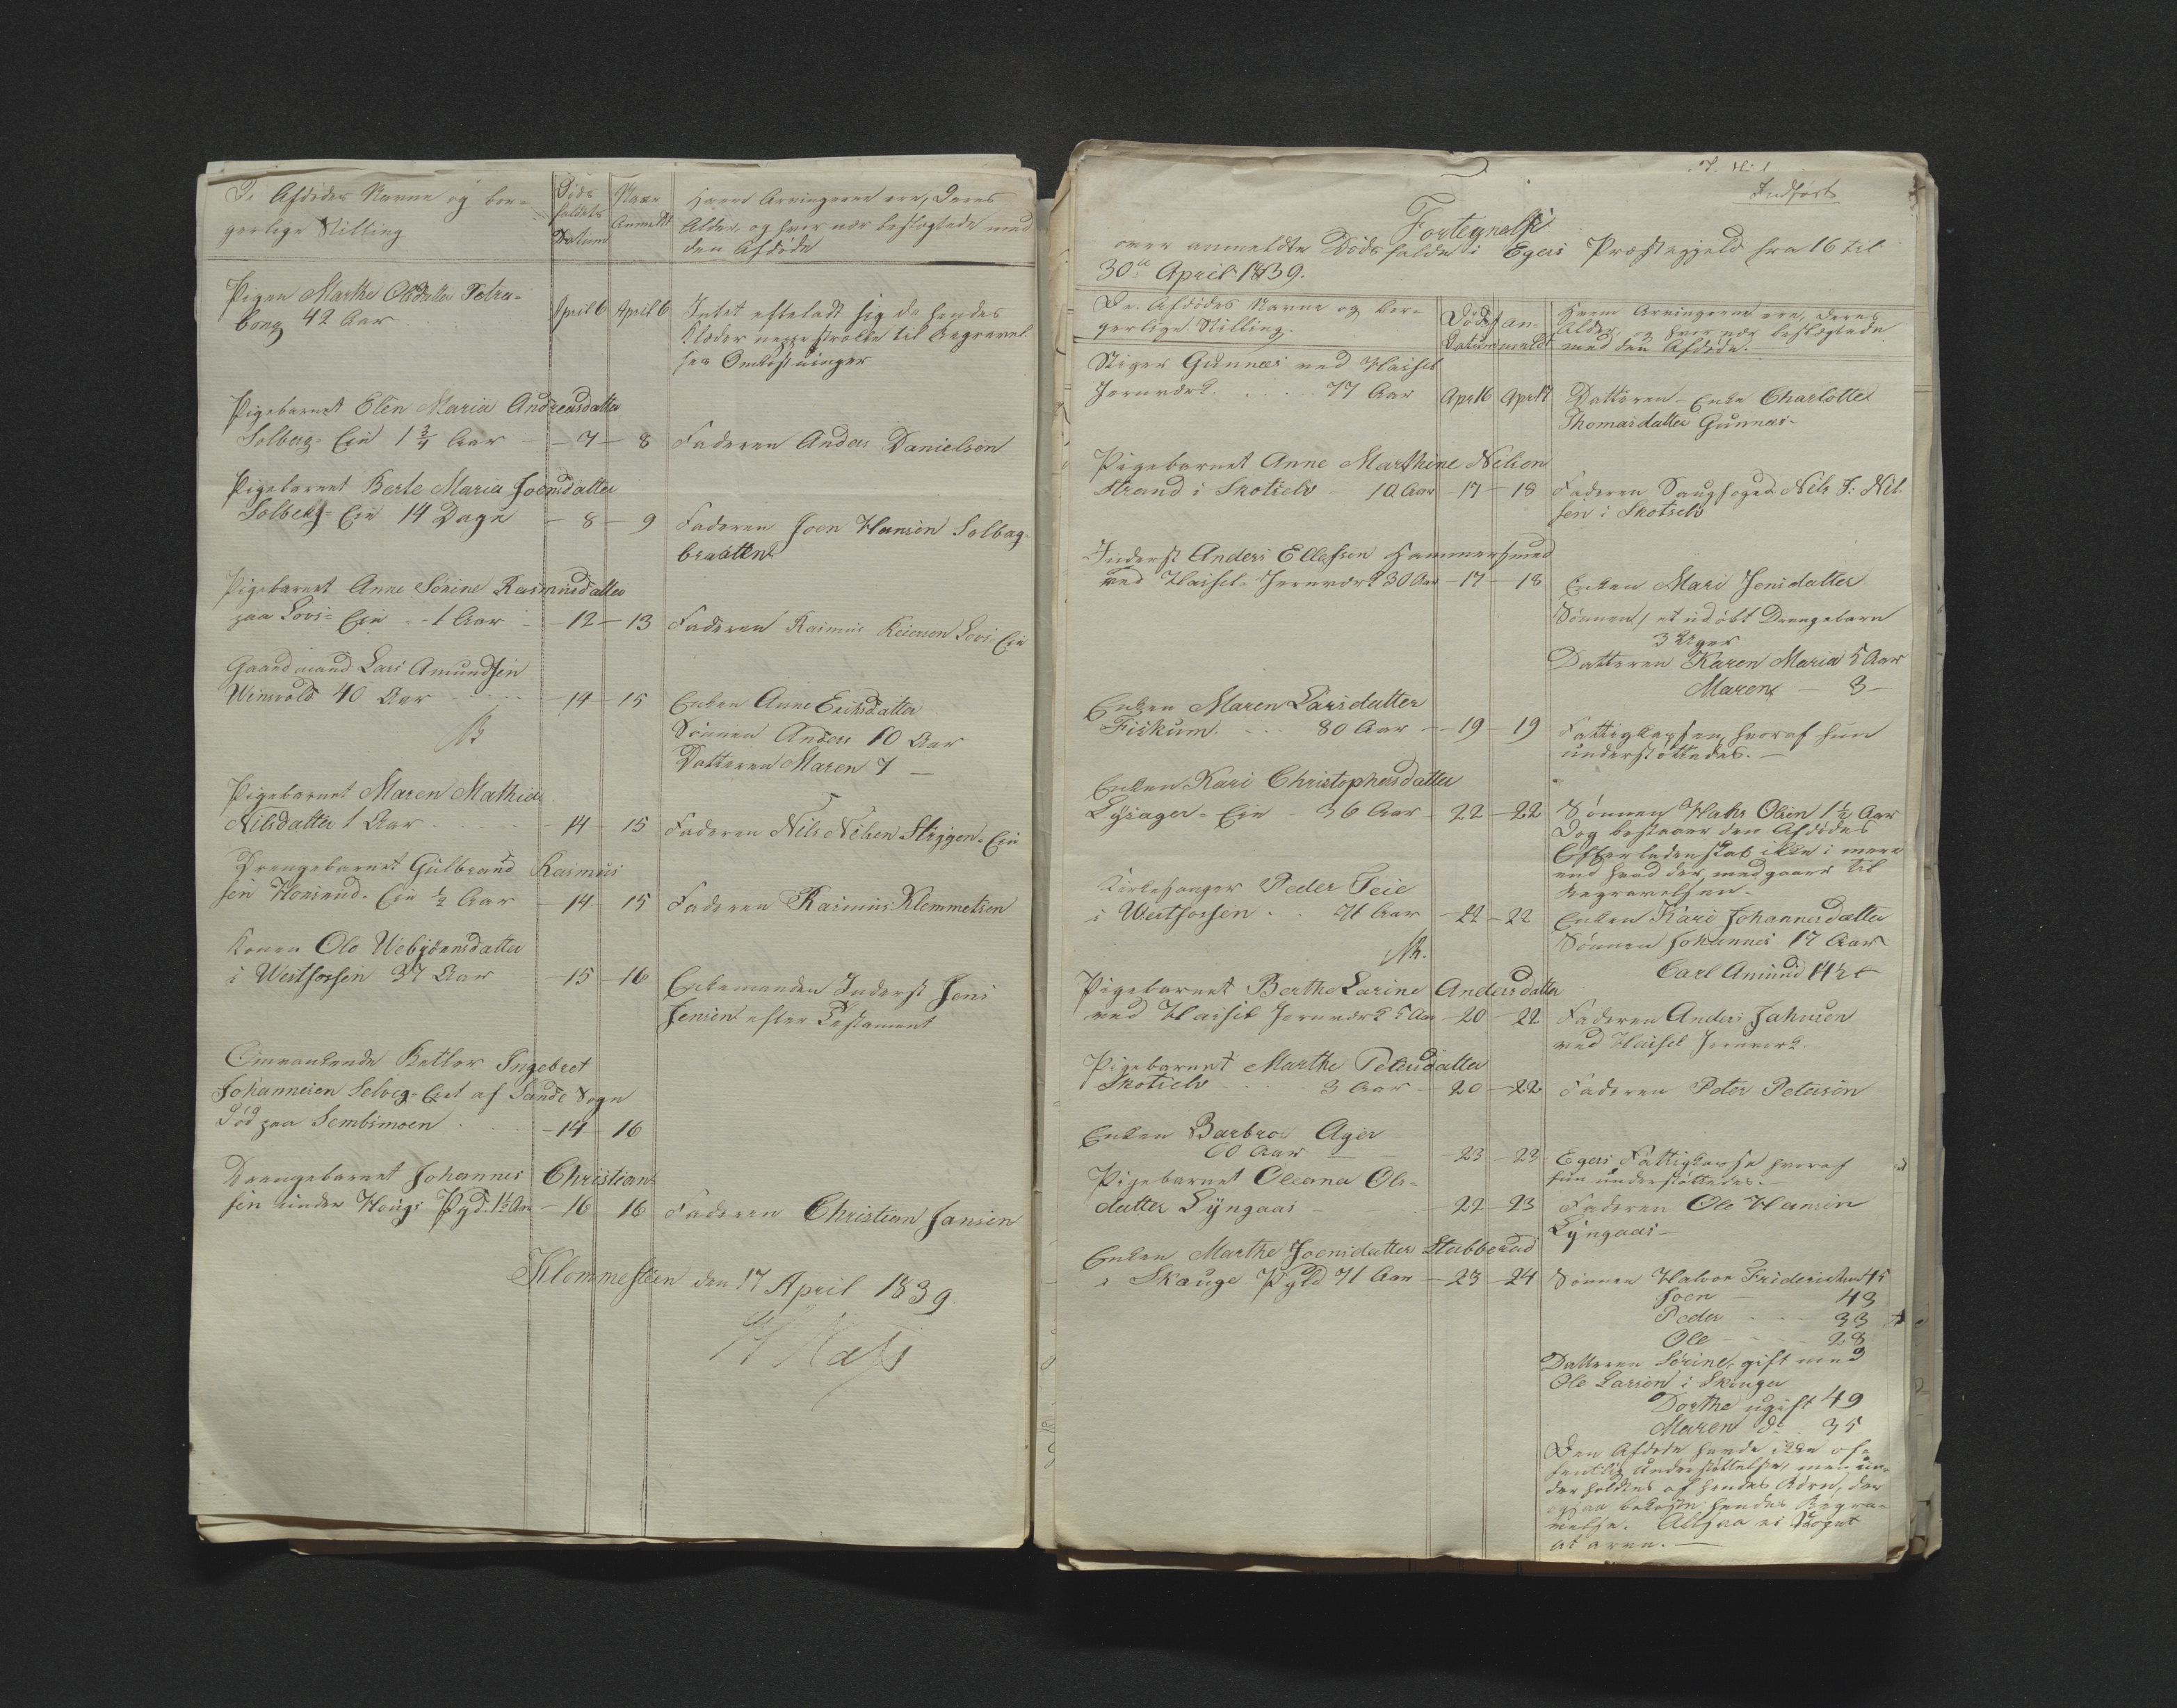 De Afdødes Navne og bor-
gerlige Stilling
Døds
faldets
Datum
Naar
Anmeldt
Hvem Arvingerne ere, Deres
Alder, og hvor nær beslægtede med
den Afdøde
Pigen Marthe Olsdatter
42 Aar
April 6 April 6
Intet efterladt sig da hendes
Klæder neppe strækte til Begravel
ses Omkostninger
Pigebarnet Elen Maria Andreasdatter
Solberg-Eie 1 3/4 Aar - 7 - 8 Faderen Anders Danielsen
Pigebarnet Berte Maria Joensdatter
Solberg-Eie 14 Dage - 8 - 9 Faderen Joen Hansen Solberg-
braatten
Pigebarnet Anne Sørine Rasmusdatter
paa Loes-Eie - 1 Aar - 12 - 13 Faderen Rasmus Loes-Eie
Gaardmand Lars Amundsen
Winsvold 40 Aar - 14 - 15 Enken Anne Eriksdatter
Sønnen Anders 10 Aar
Datteren Maren 7 -
Pigebarnet Maren Mathia
Nilsdatter 1 Aar - 14 - 15 Faderen Nils Nilsen Stryggen-Eie
Drengebarnet Gulbrand Rasmus
sen Horsrud-Eie 1/2 Aar - 14 15 Faderen Rasmus Klemmetsen
Konen Ole Uebjørnsdatter
i Westfossen 37 Aar - 15 - 16 Enkemanden Inderst Jens
Jensen efter Testament
Omvankende Betler Ingebret
Johannesen Selvig-Eiet af Sande Sogn
Død paa Sembsmoen - 14 - 16
Drengebarnet Johannes Christian
sen under Haugs Pgd. 1 1/2 Aar - 16 16 Faderen Christian Jansen
Klommesteen den 17 April 1839.
Indført
Fortegnelse
over anmeldte Dødsfalde i Egers Præstegjeld fra 16 til
30te April 1839.
De Afdødes Navne og bor-
gerlige Stilling.
Døds
Datum
an-
meldt
Hvem Arvingerne ere, Deres
Alder, og hvor nær beslægtede
med den Afdøde.
Stiger Gunnæs ved Hassel
Jernværk. 77 Aar Apr 16 Apr 17 Datteren - Enke Charlotte
Thomasdatter Gunnæs-
Pigebarnet Anne Marthine Nelson
Strand i Skotselv - 10 Aar - 17 - 18 Faderen Saugfoged Nils J: Nil
sen i Skotselv
Inderst Anders Ellefsen Hammersmed
ved Hassel-Jernværk 30 Aar - 17 - 18 Enken Mari Jensdatter
Sønnen, et udøbt Drengebarn
3 Uger
Datteren Karen Maria 5 Aar
Maren - 3 -
Enken Maren Larsdatter
Fiskum. 80 Aar - 19 - 19 Fattigkassen, hvoraf hun
understøttedes. -
Enken Kari Christophersdatter
Lysager-Eie - 36 Aar - 22 - 22 Sønnen Hans Olsen 1 1/2 Aar
Dog bestaaer den Afdødes
Efterladenskab ikke i mere
end hvad der medgaaer til
Begravelsen.
Kirkesanger Peder Teie
i Westfossen. 71 Aar - 22 - 22 Enken Kari Johannesdatter
Sønnen Johannes 17 Aar
Carl Amund 14
Pigebarnet Berthe Larine Andersdatter
ved Hassel Jernværk 5 Aar - 20 - 22 Faderen Anders Jahnsen
ved Hassel Jernværk.
Pigebarnet Marthe Petersdatter
Skotselv 3 Aar - 20 - 22 Faderen Peter Petersen
Enken Barbro Ager
60 Aar - 23 - 23 Egers Fattigkasse hvoraf
hun understøttedes. -
Pigebarnet Oleana Ols-
datter Lyngaas - 22 - 23 Faderen Ole Hansen
Lyngaas -
Enken Marthe Joensdatter Stubberud
i Skauge Pgld 71 Aar - 23 - 24 Sønnen Halvor Fridrichsen 45
Joen 43
Peder 33
Ole 28
Datteren Sørine, gift med
Ole Larsen i Skouger
Dorthe ugift 49
Maren do 35
Den Afdøde havde ikke of-
fentlig Understøttelse, men un-
derholdtes af hendes Børn, der
ogsaa bekoste hendes Begra-
velse. Altsaa ei Noget
at arve. -